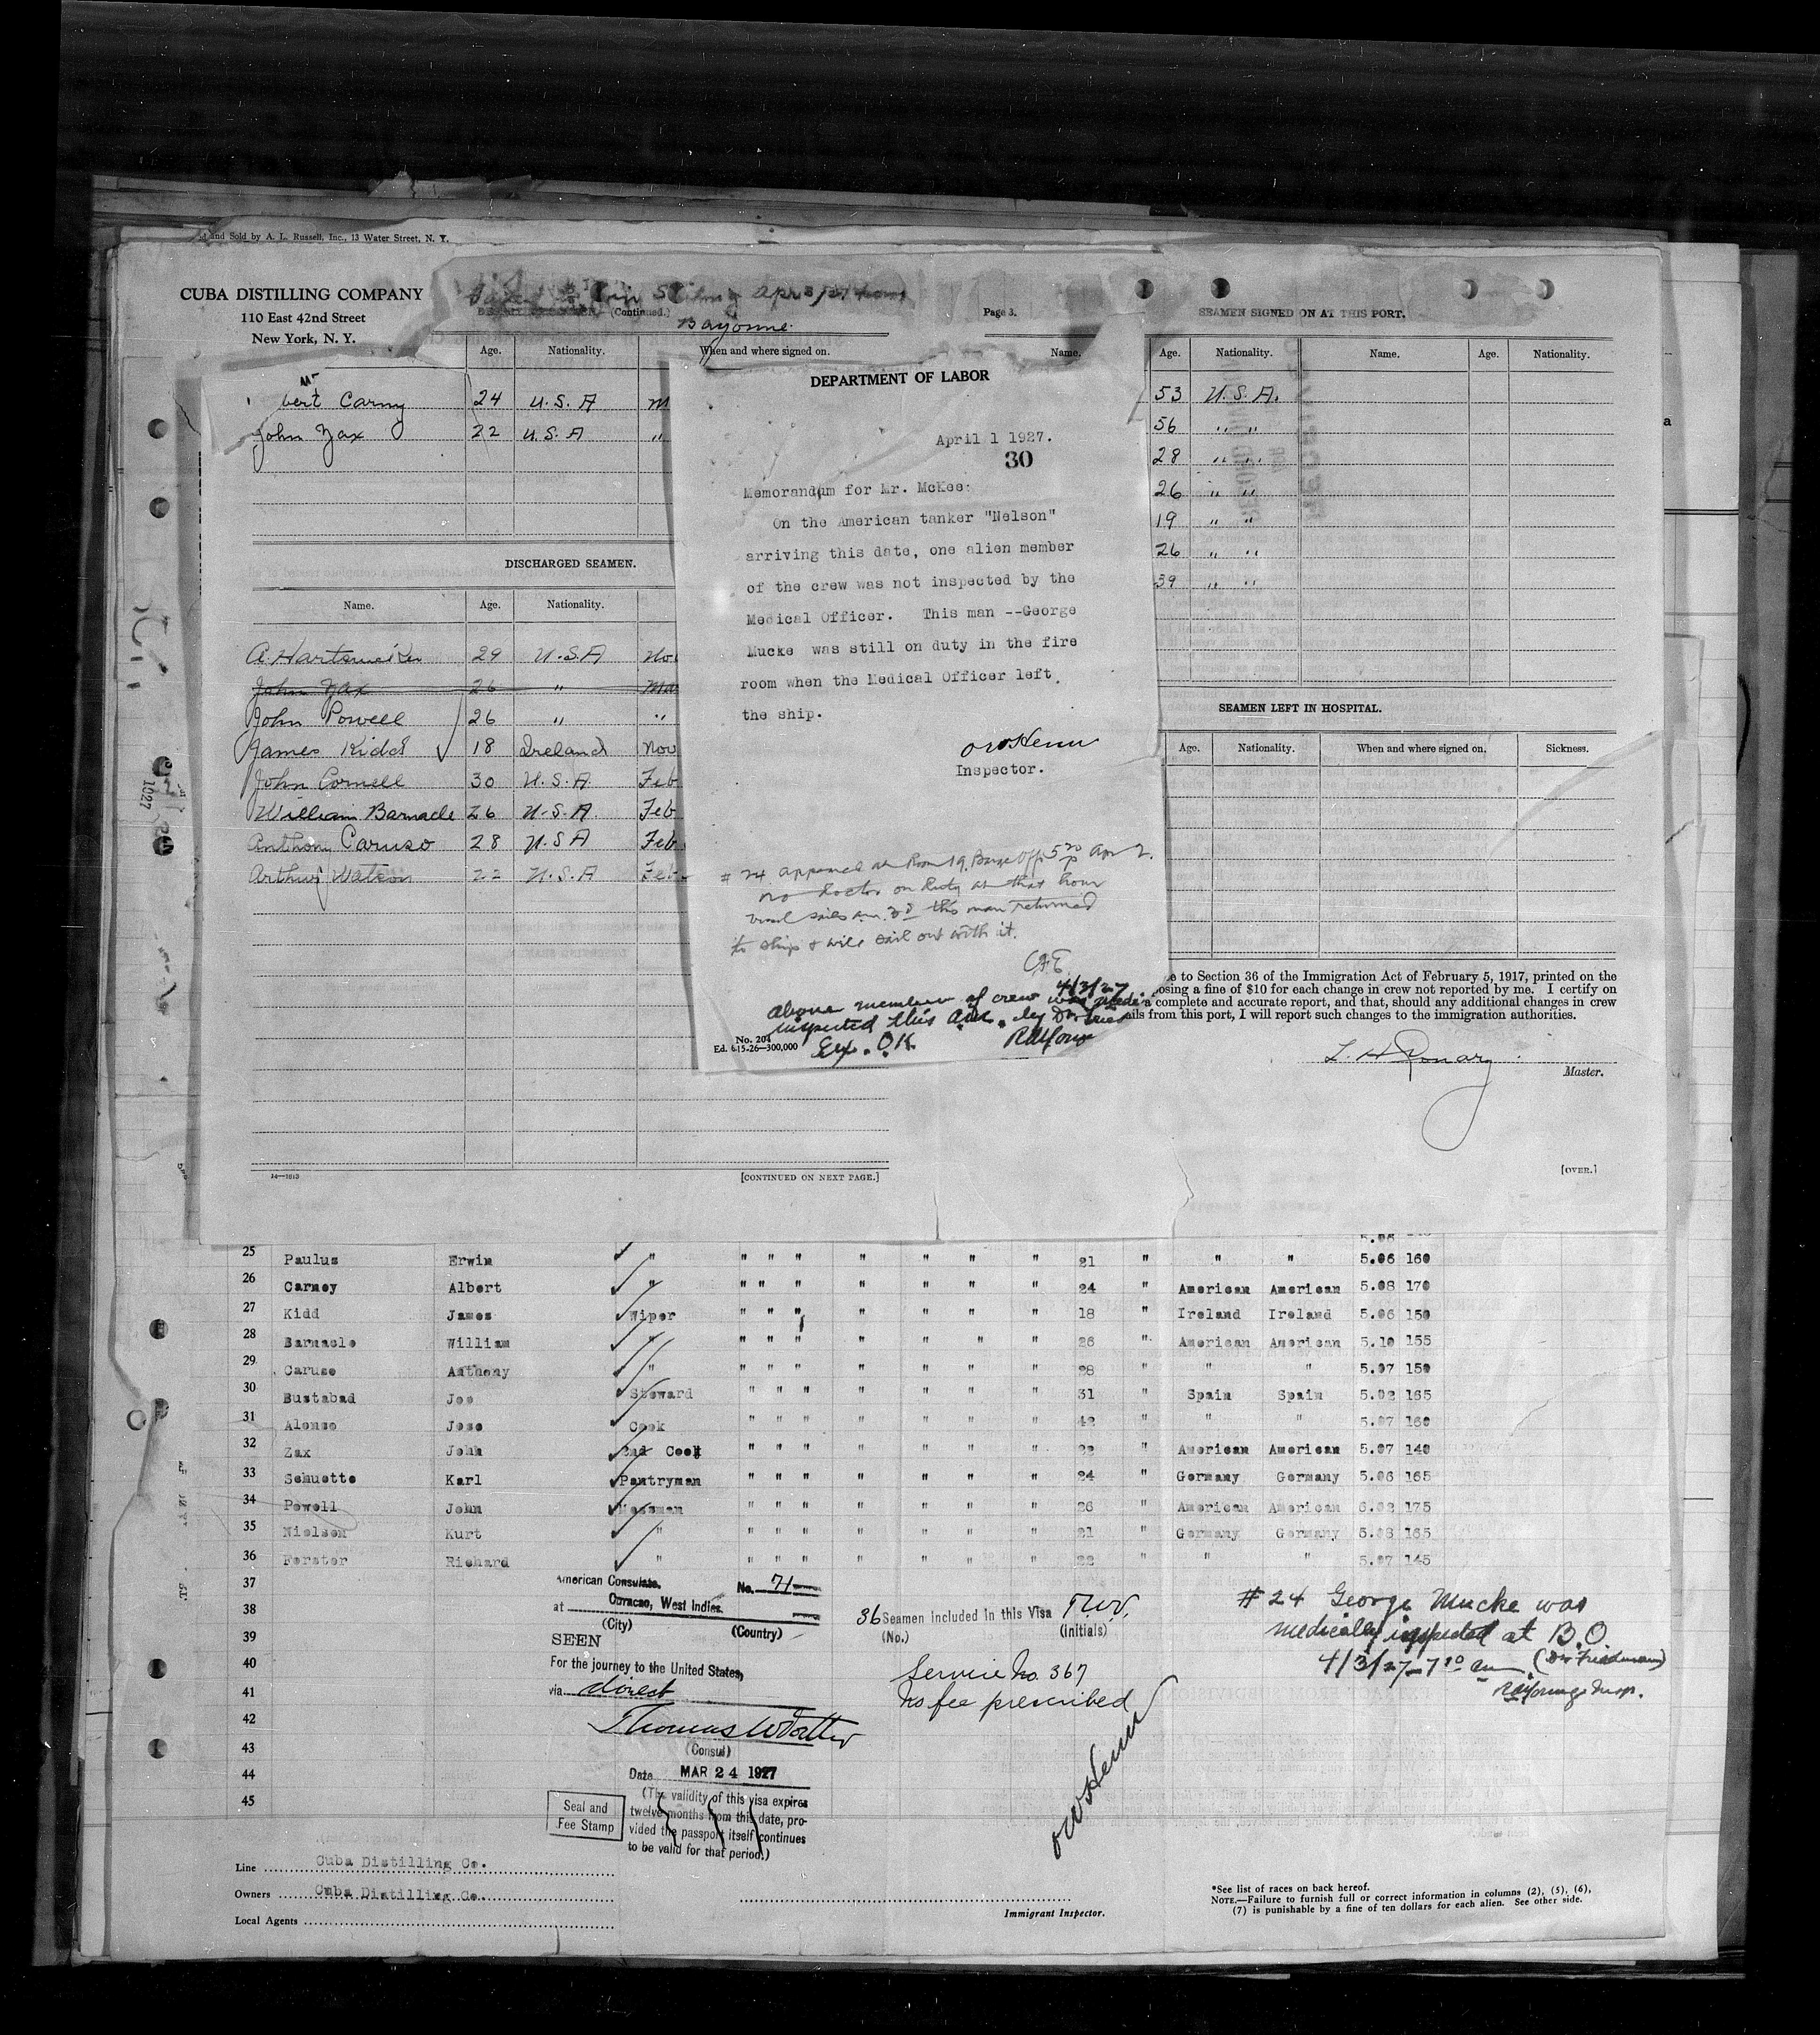 and Sold by A. L. Russell, Inc., 13 Water Street, N. Y.
CUBA DISTILLING COMPANY
110 East 42nd Street
New York, N. Y.
(Continued.)
Bayonne
Page 3.
SEAMEN SIGNED ON AT THIS PORT.
Age. Nationality. When and where signed on. Name. Age. Nationality. Name. Age. Nationality.
bert Carny 24 U.S.A
John Zax 22 U.S.A "
53 U.S.A.
56 " "
28 " "
26 " "
19 " "
26 " "
39 " "
DISCHARGED SEAMEN.
Name. Age. Nationality.
A. Hartsuciker 29 U.S.A Nov
John Zax 26 " Mar
John Powell 26 " "
James Kidd 18 Ireland Nov
John Cornell 30 U.S.A. Feb
William Barnacle 26 U.S.A. Feb
Anthony Caruso 28 U.S.A Feb
Arthur Watson 22 U.S.A Feb
14—1613
[CONTINUED ON NEXT PAGE.]
DEPARTMENT OF LABOR
April 1 1927.
30
Memorandum for Mr. McKee:
On the American tanker "Nelson"
arriving this date, one alien member
of the crew was not inspected by the
Medical Officer. This man --George
Mucke was still on duty in the fire
room when the Medical Officer left
the ship.
OWHenn
Inspector.
# 24 appeared at Room 19, Barge Off 5 20 p Apr 2.
no doctor on duty at that hour
vessel sails am. 3d this man returned
to ship & will sail out with it.
4/3/27
above member of crew was medic
inspected this am. by Dr
Sex. O.K.
No. 204
Ed. 6-15-26—300,000
SEAMEN LEFT IN HOSPITAL.
Age. Nationality. When and where signed on. Sickness.
e to Section 36 of the Immigration Act of February 5, 1917, printed on the
osing a fine of $10 for each change in crew not reported by me. I certify on
a complete and accurate report, and that, should any additional changes in crew
ails from this port, I will report such changes to the immigration authorities.
L. H. Ronary
Master.
[OVER.]
25 Paulus Erwin " " " " " " " " 21 " " " 5.06 160
26 Carney Albert " " " " " " " " 24 " American American 5.08 170
27 Kidd James Wiper " " " " " " " 18 " Ireland Ireland 5.06 150
28 Barnacle William " " " " " " " " 26 " American American 5.10 155
29 Caruso Anthony " " " " " " " " 28 " " " 5.07 150
30 Bustabad Joe Steward " " " " " " " 31 " Spain Spain 5.02 165
31 Alonso Jose Cook " " " " " " " 42 " " " 5.07 160
32 Zax John 2nd Cook " " " " " " " 22 " American American 5.07 140
33 Schuette Karl Pantryman " " " " " " " 24 " Germany Germany 5.06 165
34 Powell John Messman " " " " " " " 26 " American American 6.02 175
35 Nielsen Kurt " " " " " " " " 21 " Germany Germany 5.08 165
36 Forster Richard " " " " " " " " 22 " " " 5.07 145
37
38
39
40
41
42
43
44
45
American Consulate, No. 71
at Curacao, West Indies.
(City) (Country)
SEEN
For the journey to the United States,
via direct
(Consul)
Date MAR 24 1927
(The validity of this visa expires
twelve months from this date, pro-
vided the passport itself continues
to be valid for that period.)
Seal and
Fee Stamp
36 Seamen included in this Visa T.W.V.
(No.) (Initials)
Service No. 367
No fee prescribed
OWHenn
# 24 George Mucke was
medically inspected at B.O
4/3/27 - 7 10 am. (Dr Friedman)
Line Cuba Distilling Co.
Owners Cuba Distilling Co.
Local Agents
Immigrant Inspector.
*See list of races on back hereof.
NOTE.—Failure to furnish full or correct information in columns (2), (5), (6),
(7) is punishable by a fine of ten dollars for each alien. See other side.